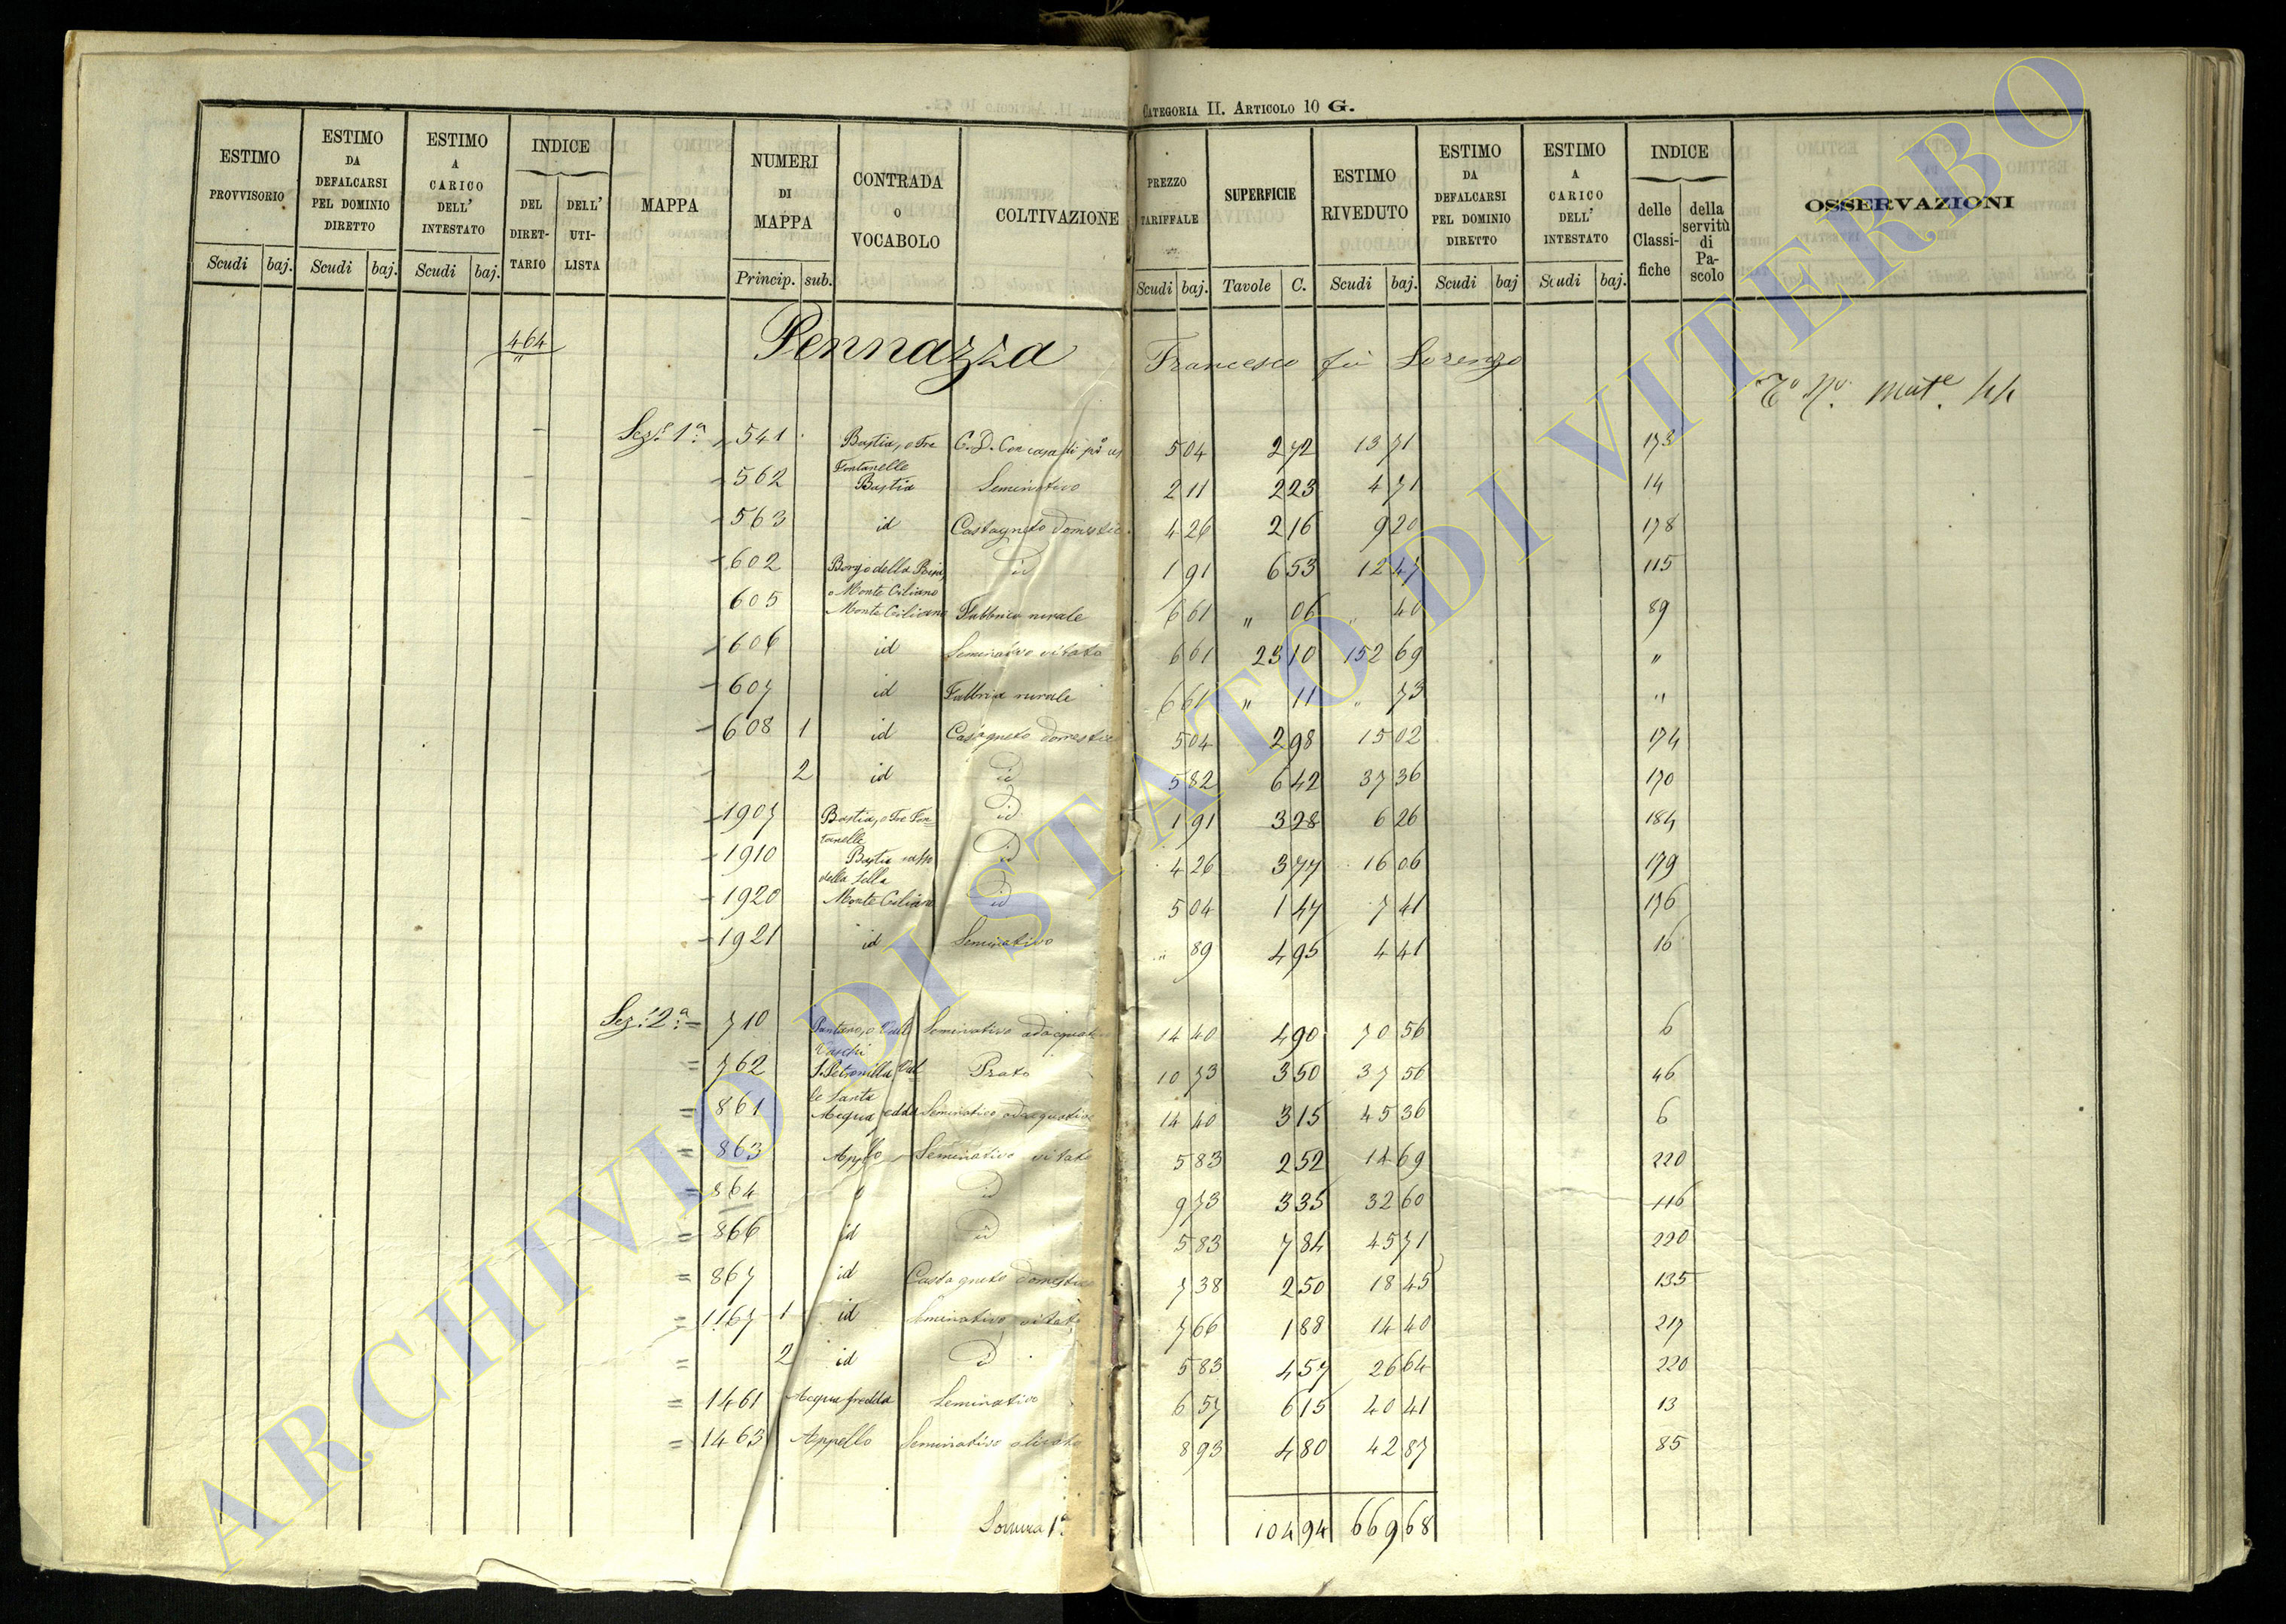 CATEGORIA II. ARTICOLO 10 G.
ESTIMO PROVVISORIO Scudi baj.
ESTIMO DA DEFALCARSI PEL DOMINIO DIRETTO Scudi baj.
ESTIMO A CARICO DELL' INTESTATO Scudi baj.
INDICE DEL DIRET-TARIO DELL' UTI-LISTA
MAPPA
NUMERI DI MAPPA Princip. sub.
CONTRADA O VOCABOLO
COLTIVAZIONE
PREZZO TARIFFALE Scudi baj.
SUPERFICIE Tavole C.
ESTIMO RIVEDUTO Scudi baj.
ESTIMO DA DEFALCARSI PEL DOMINIO DIRETTO Scudi baj
ESTIMO A CARICO DELL' INTESTATO Scudi baj.
INDICE delle Classi-fiche della servitù di Pa-scolo
OSSERVAZIONI
464 Pennazza Francesco fù Lorenzo
Sez.e 1a 541 Bastia, o Tre Fontanelle C. D. Con casa di 5 04 2 72 13 71 173
562 Bastia Seminativo 2 11 2 23 4 71 14
563 id Castagneto domestic 4 26 2 16 9 20 178
602 Borgo della o Monte Ciliano id 1 91 6 53 12 47 115
605 Monte Ciliano Fabbrica rurale 6 61 " 06 " 40 89
606 id Seminativo vitato 6 61 23 10 152 69 "
607 id Fabbria rurale 6 61 " 11 " 73 "
608 1 id Castagneto domestic 5 04 2 98 15 02 174
2 id id 5 82 6 42 37 36 170
1907 Bastia, o Tre Fontanelle id 1 91 3 28 6 26 184
1910 Bastia della Sella id 4 26 3 77 16 06 179
1920 Monte Ciliano id 5 04 1 47 7 41 176
1921 id Seminativo " 89 4 95 4 41 16
Sez. 2a 710 Pantano, o Vaschi Seminativo adacquati 14 40 4 90 70 56 6
762 S. Petronilla Valle Santa Prato 10 73 3 50 37 56 46
861 Acqua edda Seminativo adacquativo 14 40 3 15 45 36 6
863 Appello Seminativo vitato 5 83 2 52 14 69 220
864 id 9 73 3 35 32 60 116
866 id id 5 83 7 84 45 71 220
867 id Castagneto domestico 7 38 2 50 18 45 135
1167 1 id Seminativo vitato 7 66 1 88 14 40 217
2 id id 5 83 4 57 26 64 220
1461 Acqua fredda Seminativo 6 57 6 15 40 41 13
1463 Appello Seminativo olivato 8 93 4 80 42 87 85
Somma 1a 104 94 669 68
ARCHIVIO DI STATO DI VITERBO